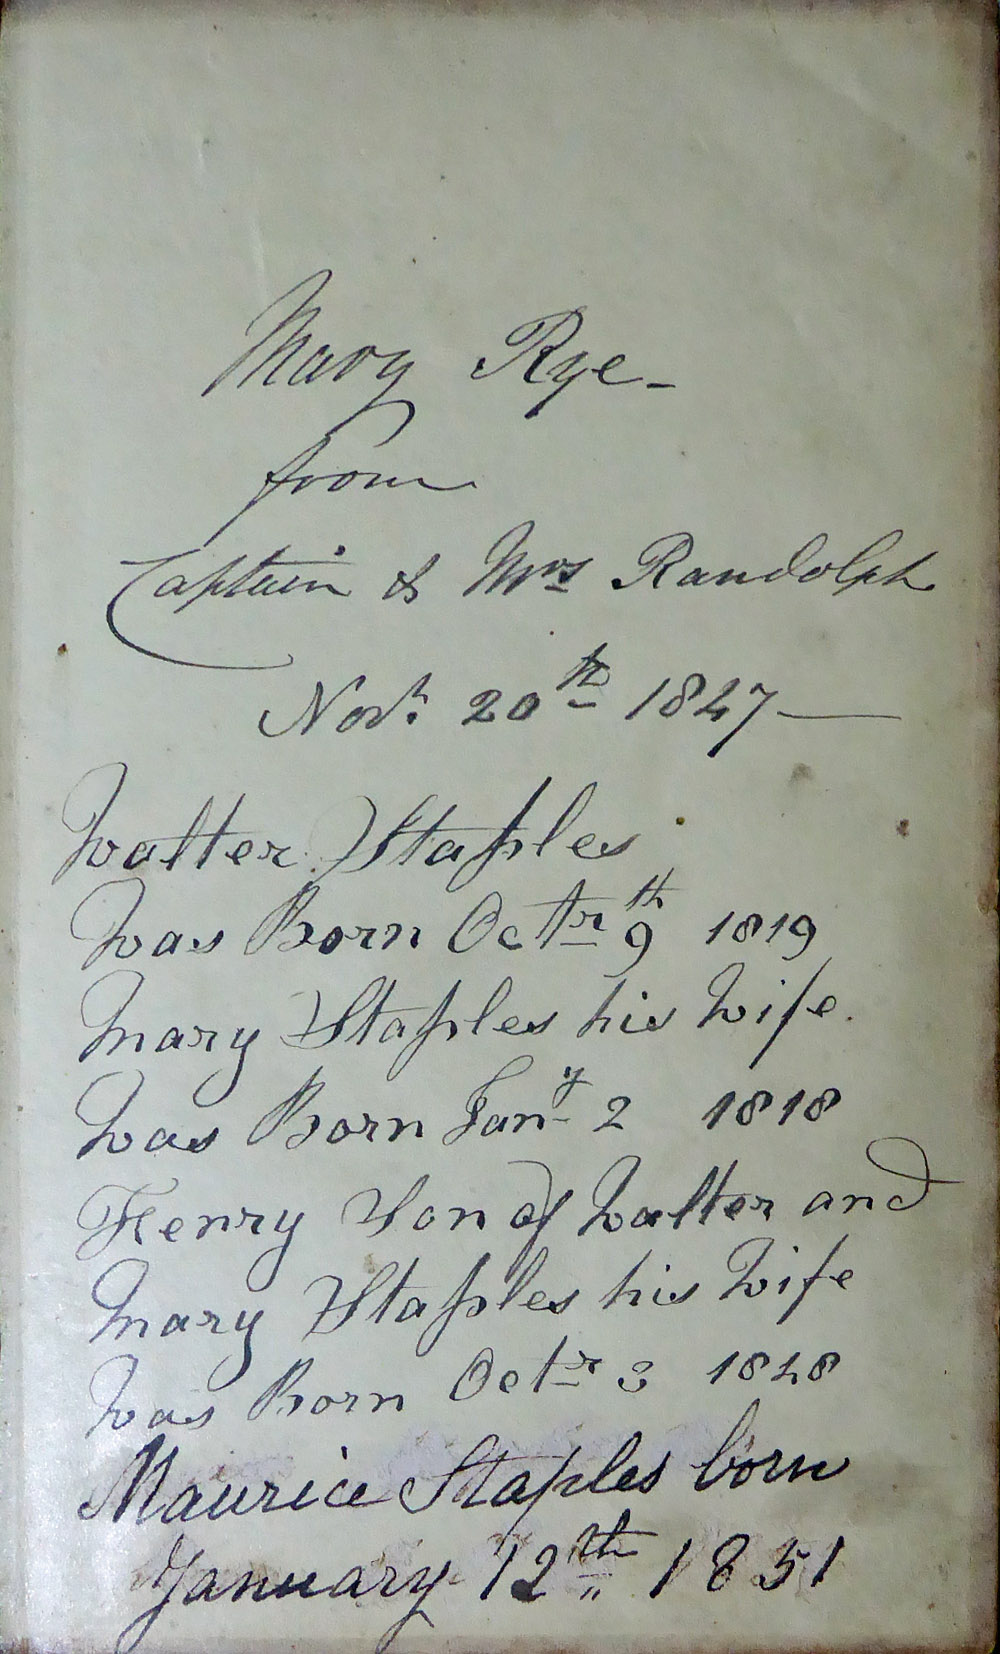 Mary Rye -
from
Captain & Mrs Randolph
Novr. 20th 1847 —
Walter Staples
Was Born Octr 9th 1819
Mary Staples his Wife.
Was Born Jany 2 1818
Henry Son of Walter and
Mary Staples his Wife
Was Born Octr 3 1848
Maurice Staples born
January 12th 1851